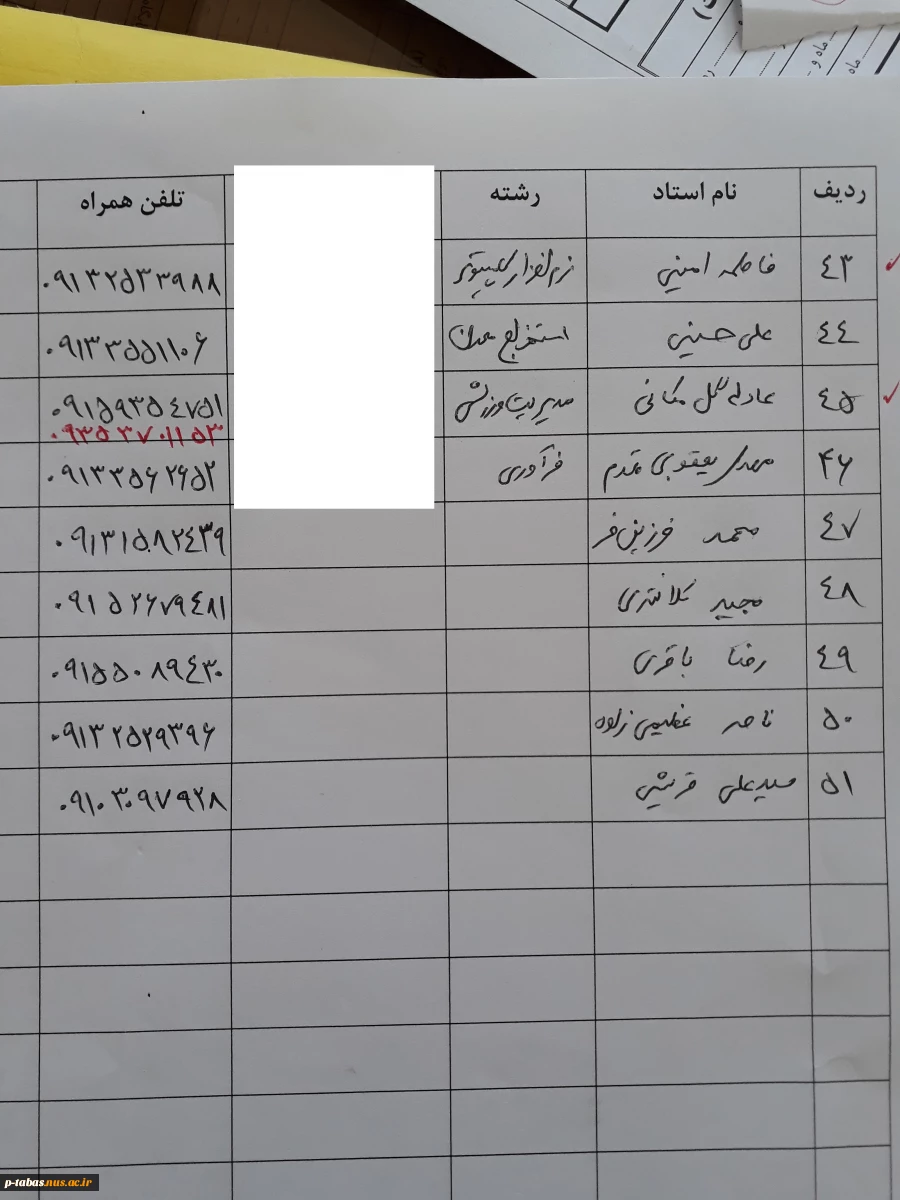 ماه و
ماه
ردیف نام استاد رشته تلفن همراه
٤٣ فاطمه امینی نرم افزار کامپیوتر ۰۹۱۳۲۵۳۳۹۸۸
٤٤ علی حسینی استخراج معدن ۰۹۱۳۳۵۵۱۱۰۶
٤۵ عادله گل مکانی مدیریت ورزشی ۰۹۱۵۹۳۵٤۷۵۱
۰۹۳۵۳۷۰۱۱۵۳
۴۶ مهدی یعقوبی مقدم فرآوری ۰۹۱۳۳۵۶۲۶۵۲
٤۷ محمد فرزین فر ۰۹۱۳۱۵۸۲٤۳۹
٤۸ مجید کلانتری ۰۹۱۵۲۶۷۹٤۸۱
٤۹ رضا باقری ۰۹۱۵۵۰۸۹٤۳۰
۵۰ ناصر عظیمی زاده ۰۹۱۳۲۵۲۹۳۹۶
۵۱ سیدعلی قریشی ۰۹۱۰۳۰۹۷۹۲۸
p-tabas.nus.ac.ir